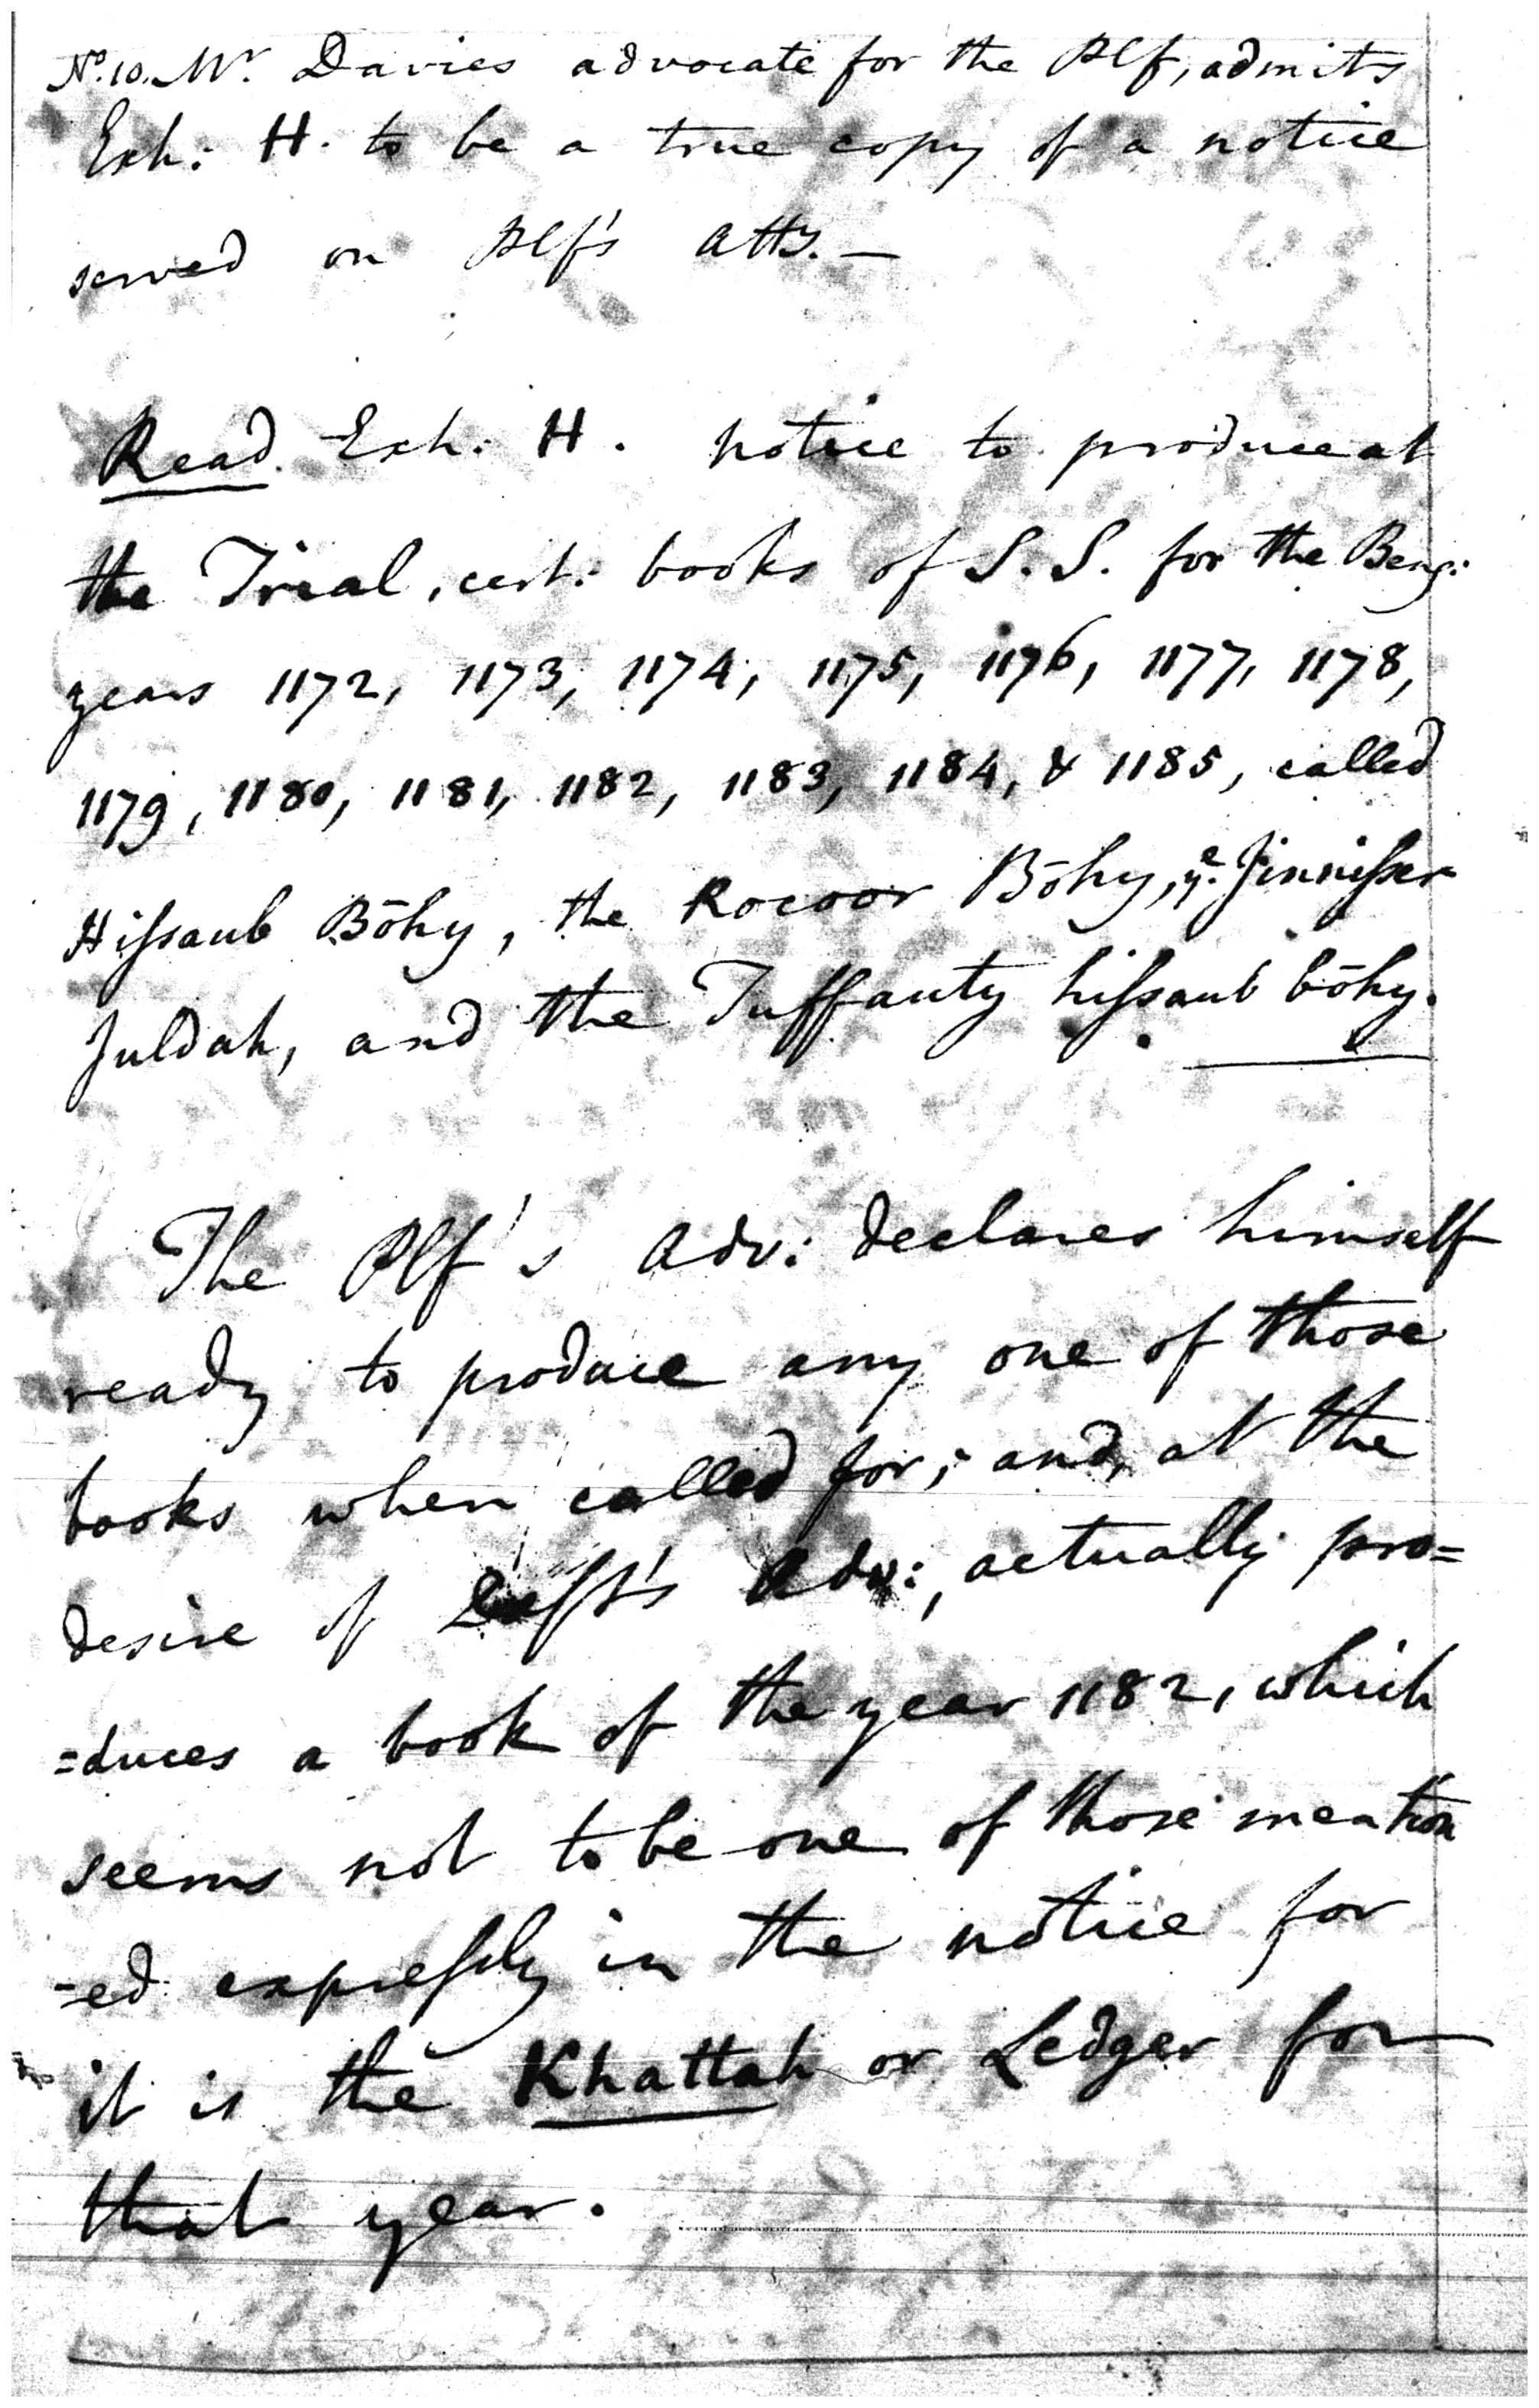 No. 10. Mr. Davies advocate for the Plf, admits
Exh: H. to be a true copy of a notice
served on Plf's Atty. —
Read Exh: H. notice to produce at
the Trial, cert: books of S. S. for the Beng:
years 1172, 1173, 1174, 1175, 1176, 1177, 1178,
1179, 1180, 1181, 1182, 1183, 1184, & 1185, called
Hiſsaub Bōhy, the Rocoor Bōhy, ye. Jinniſser
Juldah, and the Tuffauty hiſsaub bōhy.
The Plf's Adv: declares himself
ready to produce any one of those
books when called for; and, at the
desire of Deft's Adv:, actually pro=
=duces a book of the year 1182, which
seems not to be one of those mention
-ed expreſsly in the notice for
it is the Khattah or Ledger for
that year.